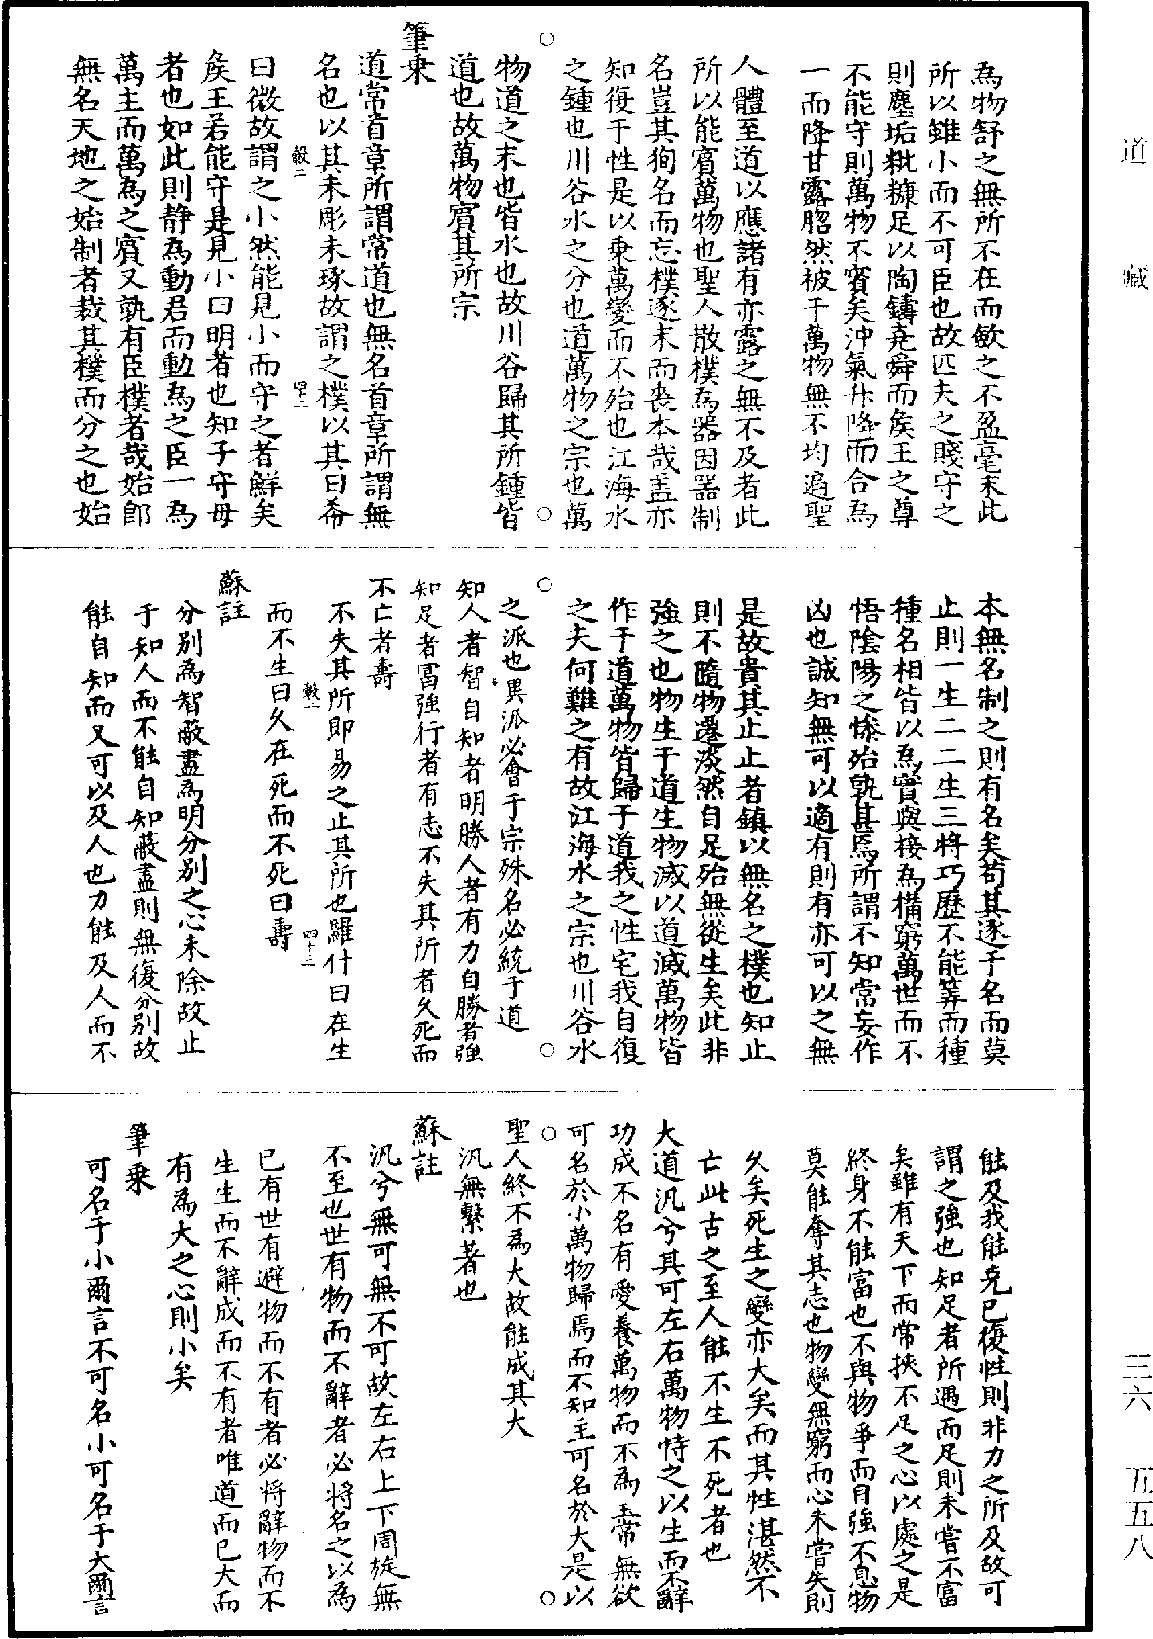 道藏
爲物舒之無所不在而斂之不盈毫末此
所以雖小而不可臣也故匹夫之賤守之
則塵垢粃糠足以陶鑄堯舜而矦王之尊
不能守則萬物不賓矣沖氣升降而合爲
一而降甘露脗然被于萬物無不均遍聖
人體至道以應諸有亦露之無不及者此
所以能賓萬物也聖人散樸爲器因器制
名豈其狥名而忘樸逐末而喪本哉蓋亦
知復于性是以乗萬變而不殆也江海水
之鍾也川谷水之分也道萬物之宗也萬
○ ○
物道之末也皆水也故川谷歸其所鍾皆
道也故萬物賓其所宗
筆乗
道常首章所謂常道也無名首章所謂無
名也以其未彫未琢故謂之樸以其曰希
毂二 四十二
曰微故謂之小然能見小而守之者鮮矣
矦王若能守是見小曰明者也知子守母
者也如此則静為動君而動爲之臣一為
萬主而萬為之賓又孰有臣樸者哉始即
無名天地之始制者裁其樸而分之也始
本無名制之則有名矣苟其逐于名而莫
止則一生二二生三將巧歷不能筭而種
種名相皆以爲實與接為構窮萬世而不
悟陰陽之慘殆孰甚焉所謂不知常妄作
凶也誠知無可以適有則有亦可以之無
是故貴其止止者鎮以無名之樸也知止
則不隨物遷淡然自足殆無從生矣此非
強之也物生于道生物滅以道滅萬物皆
作于道萬物皆歸于道我之性宅我自復
之夫何難之有故江海水之宗也川谷水
○ ○
之派也異派必會于宗殊名必統于道
知人者智自知者明勝人者有力自勝者強
知足者富強行者有志不失其所者久死而
不亡者壽
不失其所即易之止其所也羅什曰在生
毂二 四十三
而不生曰久在死而不死曰壽
蘇註
分別爲智蔽盡爲明分別之心未除故止
于知人而不能自知蔽盡則無復分別故
能自知而又可以及人也力能及人而不
能及我能克已復性則非力之所及故可
謂之強也知足者所遇而足則未嘗不富
矣雖有天下而常挾不足之心以處之是
終身不能富也不與物爭而自強不息物
莫能奪其志也物變無窮而心未嘗失則
久矣死生之變亦大矣而其性湛然不
亡此古之至人能不生不死者也
大道汎兮其可左右萬物恃之以生而不辭
功成不名有愛養萬物而不為主常無欲
可名於小萬物歸焉而不知主可名於大是以
○ ○
聖人終不為大故能成其大
汎無繫著也
蘇註
汎兮無可無不可故左右上下周旋無
不至也世有物而不辭者必將名之以為
已有世有避物而不有者必將辭物而不
生生而不辭成而不有者唯道而已大而
有為大之心則小矣
筆乗
可名于小爾言不可名小可名于大爾言
三六 五五八